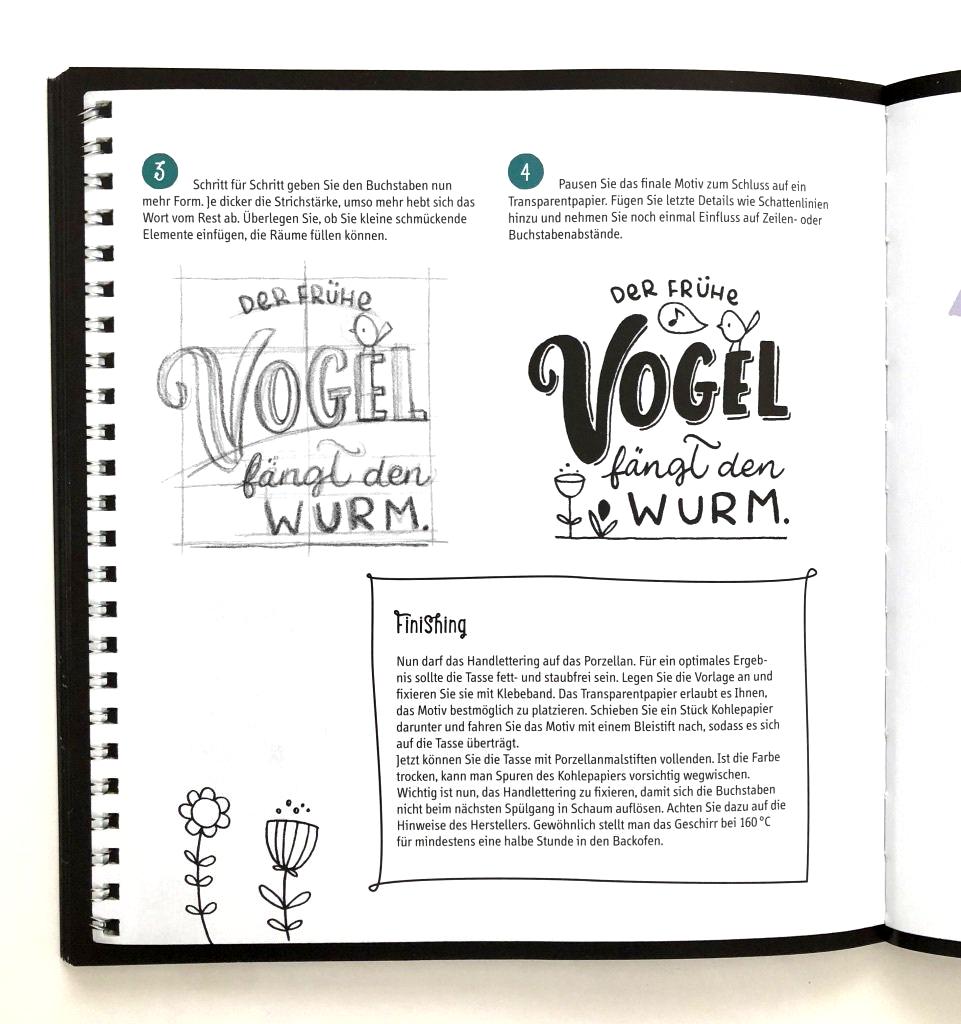 3
Schritt für Schritt geben Sie den Buchstaben nun
mehr Form. Je dicker die Strichstärke, umso mehr hebt sich das
Wort vom Rest ab. Überlegen Sie, ob Sie kleine schmückende
Elemente einfügen, die Räume füllen können.
DER FRÜHE
VOGEL
fängt den
WURM.
4
Pausen Sie das finale Motiv zum Schluss auf ein
Transparentpapier. Fügen Sie letzte Details wie Schattenlinien
hinzu und nehmen Sie noch einmal Einfluss auf Zeilen- oder
Buchstabenabstände.
DER FRÜHE
VOGEL
fängt den
WURM.
Finishing
Nun darf das Handlettering auf das Porzellan. Für ein optimales Ergeb-
nis sollte die Tasse fett- und staubfrei sein. Legen Sie die Vorlage an und
fixieren Sie sie mit Klebeband. Das Transparentpapier erlaubt es Ihnen,
das Motiv bestmöglich zu platzieren. Schieben Sie ein Stück Kohlepapier
darunter und fahren Sie das Motiv mit einem Bleistift nach, sodass es sich
auf die Tasse überträgt.
Jetzt können Sie die Tasse mit Porzellanmalstiften vollenden. Ist die Farbe
trocken, kann man Spuren des Kohlepapiers vorsichtig wegwischen.
Wichtig ist nun, das Handlettering zu fixieren, damit sich die Buchstaben
nicht beim nächsten Spülgang in Schaum auflösen. Achten Sie dazu auf die
Hinweise des Herstellers. Gewöhnlich stellt man das Geschirr bei 160 °C
für mindestens eine halbe Stunde in den Backofen.